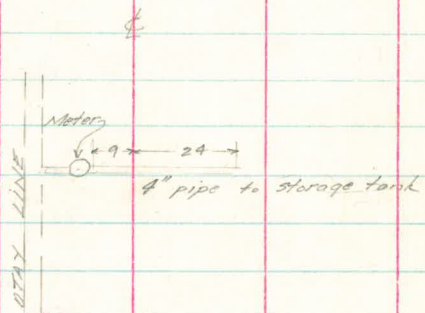 ℄
Meter
9 24
4" pipe to storage tank
OTAY LINE